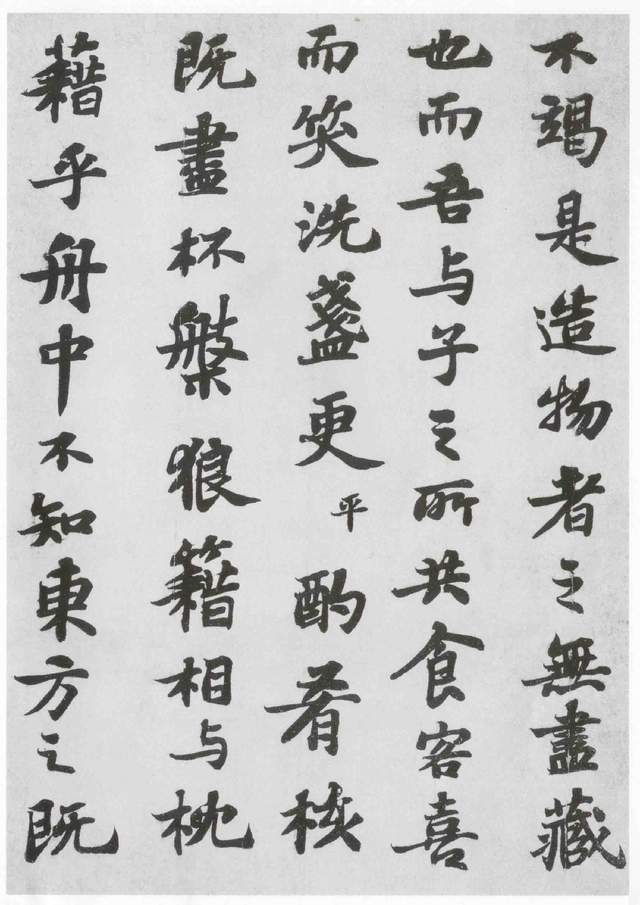 不竭是造物者之無盡藏
也而吾与子之所共食客喜
而笑洗盞更平酌肴核
既盡杯槃狼籍相与枕
藉乎舟中不知東方之既